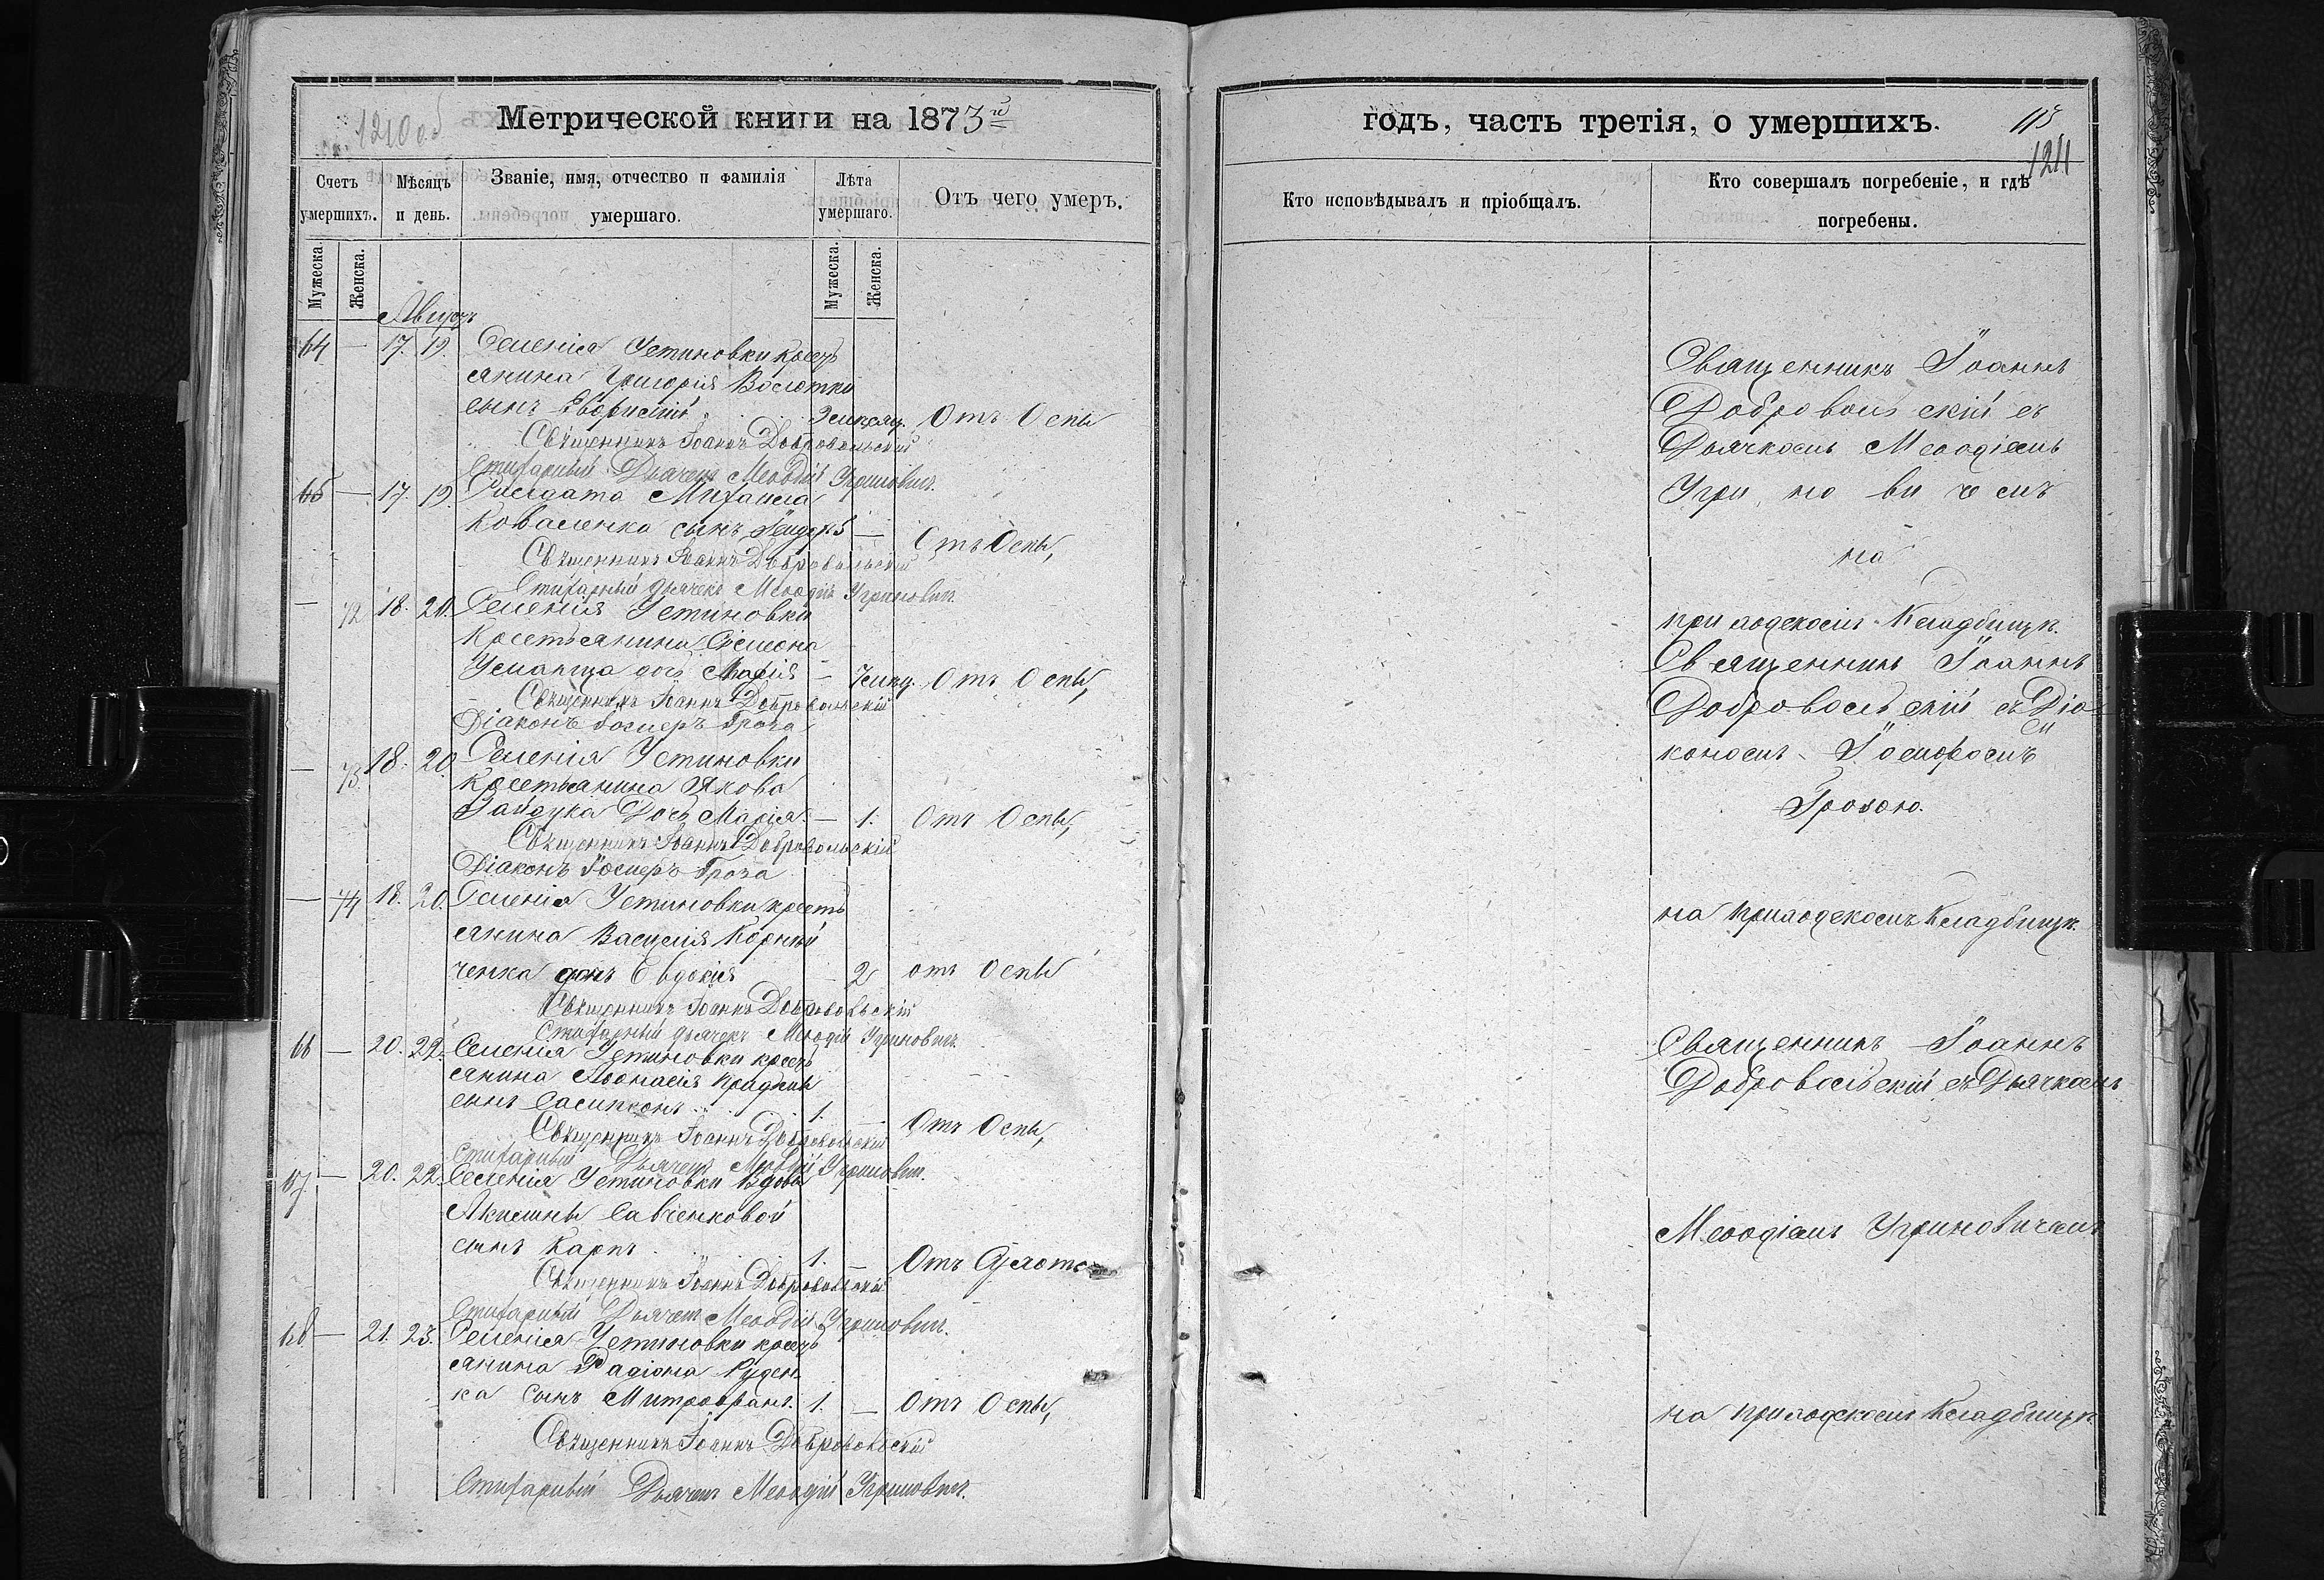 1210 об
Метрической книги на 1873 й
Счетъ умершихъ.
Мѣсяцъ и день.
Званіе, имя, отчество и фамилія умершаго.
Лѣта умершаго.
Отъ чего умеръ.
Мужеска.
Женска.
Мужеска.
Женска.
Августъ
64 — 17. 19. Селенія Устиновки крест
янина Григорія Васютки
сынъ
Отъ Оспы
Священникъ Іоаннъ Добровольский
Стихарный Дьячекъ Меѳодій Угринович.
65 — 17. 19. Солдата Михаила
Коваленка сынъ — Отъ Оспы,
Священникъ Іоаннъ Добровольский
Стихарный дьячекъ Меѳодій Угринович.
— 72 18. 20. Селенія Устиновки
Крестьянина Симеона
дочь Марія — 7 Отъ Оспы,
Священникъ Іоаннъ Добровольскій
Діаконъ Іосифъ Гроза
— 73. 18. 20. Селенія Устиновки
Крестьянина Якова
Гайдука Дочь Марія — 1. Отъ Оспы,
Священникъ Іоаннъ Добровольскій
Діаконъ Іосифъ Гроза
— 74 18. 20. Селенія Устиновки крест
янина Василія Корній
ченка дочь Евдокія 2 отъ Оспы
Священникъ Іоаннъ Добровольскій
Стихарный дьячекъ Меѳодій Угринович.
66 — 20. 22. Селенія Устиновки крест
янина Аѳонасія
сынъ 1. — Отъ Оспы,
Священникъ Іоаннъ Добровольский
Стихарный Дьячекъ Меѳодій Угринович.
67 — 20. 22. Селенія Устиновки Вдовы
Акилины Савченковой
сынъ Карпъ. 1. — Отъ
Священникъ Іоаннъ Добровольский
Стихарный Дьячекъ Меѳодій Угринович.
68 — 21. 23. Селенія Устиновки крест
янина Радіона Руден
ка сынъ Митрофанъ. 1. — Отъ Оспы,
Священникъ Іоаннъ Добровольскій
Стихарный Дьячекъ Меѳодій Угринович.
годъ, часть третія, о умершихъ.
115
1211
Кто исповѣдывалъ и пріобщалъ.
Кто совершалъ погребеніе, и гдѣ погребены.
Священникъ Іоаннъ
Добровольскій съ
Дьячкомъ Меѳодіемъ
Угриновичемъ
на
приходскомъ Кладбищѣ.
Священникъ Іоаннъ
Добровольскій съ Діа
кономъ Іосифомъ
Грозою.
на приходскомъ Кладбищѣ.
Священникъ Іоаннъ
Добровольскій съ Дьячкомъ
Меѳодіемъ Угриновичемъ
на приходскомъ Кладбищѣ